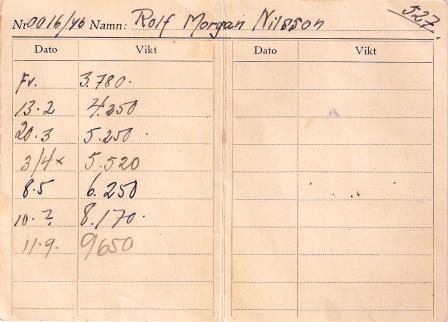 Nr 0016/46 Namn: Rolf Morgan Nilsson 527.
Dato Vikt Dato Vikt
Fv. 3.780.
13.2 4.250
20.3 5.250.
3/4 x 5.520
8.5 6.250
10.7. 8.170.
11.9. 9650